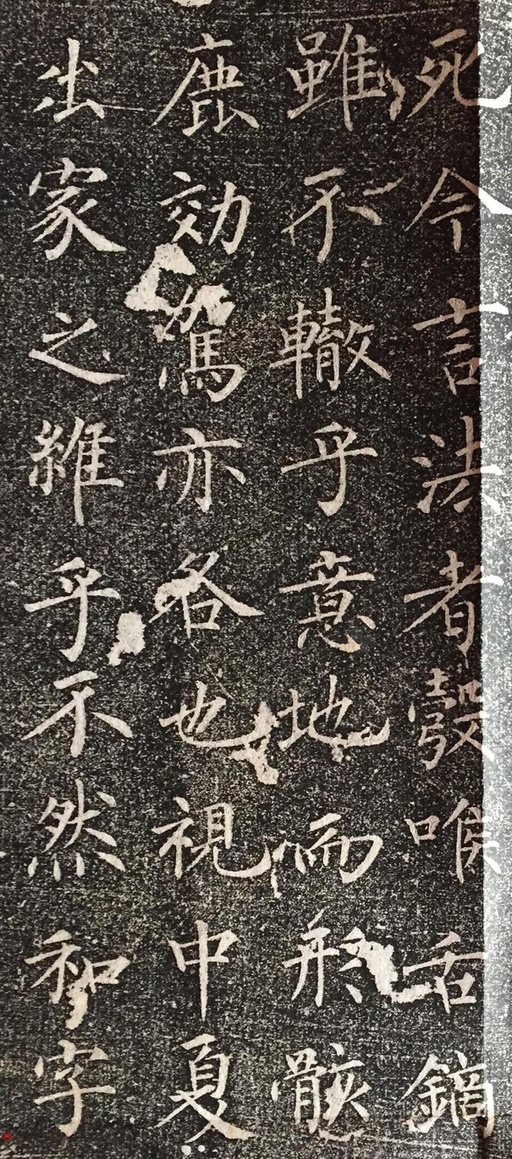 死今言法者彀喉舌鏑
雖不轍乎意地而形骸
鹿効駕亦各也視中夏
出家之維乎不然和字